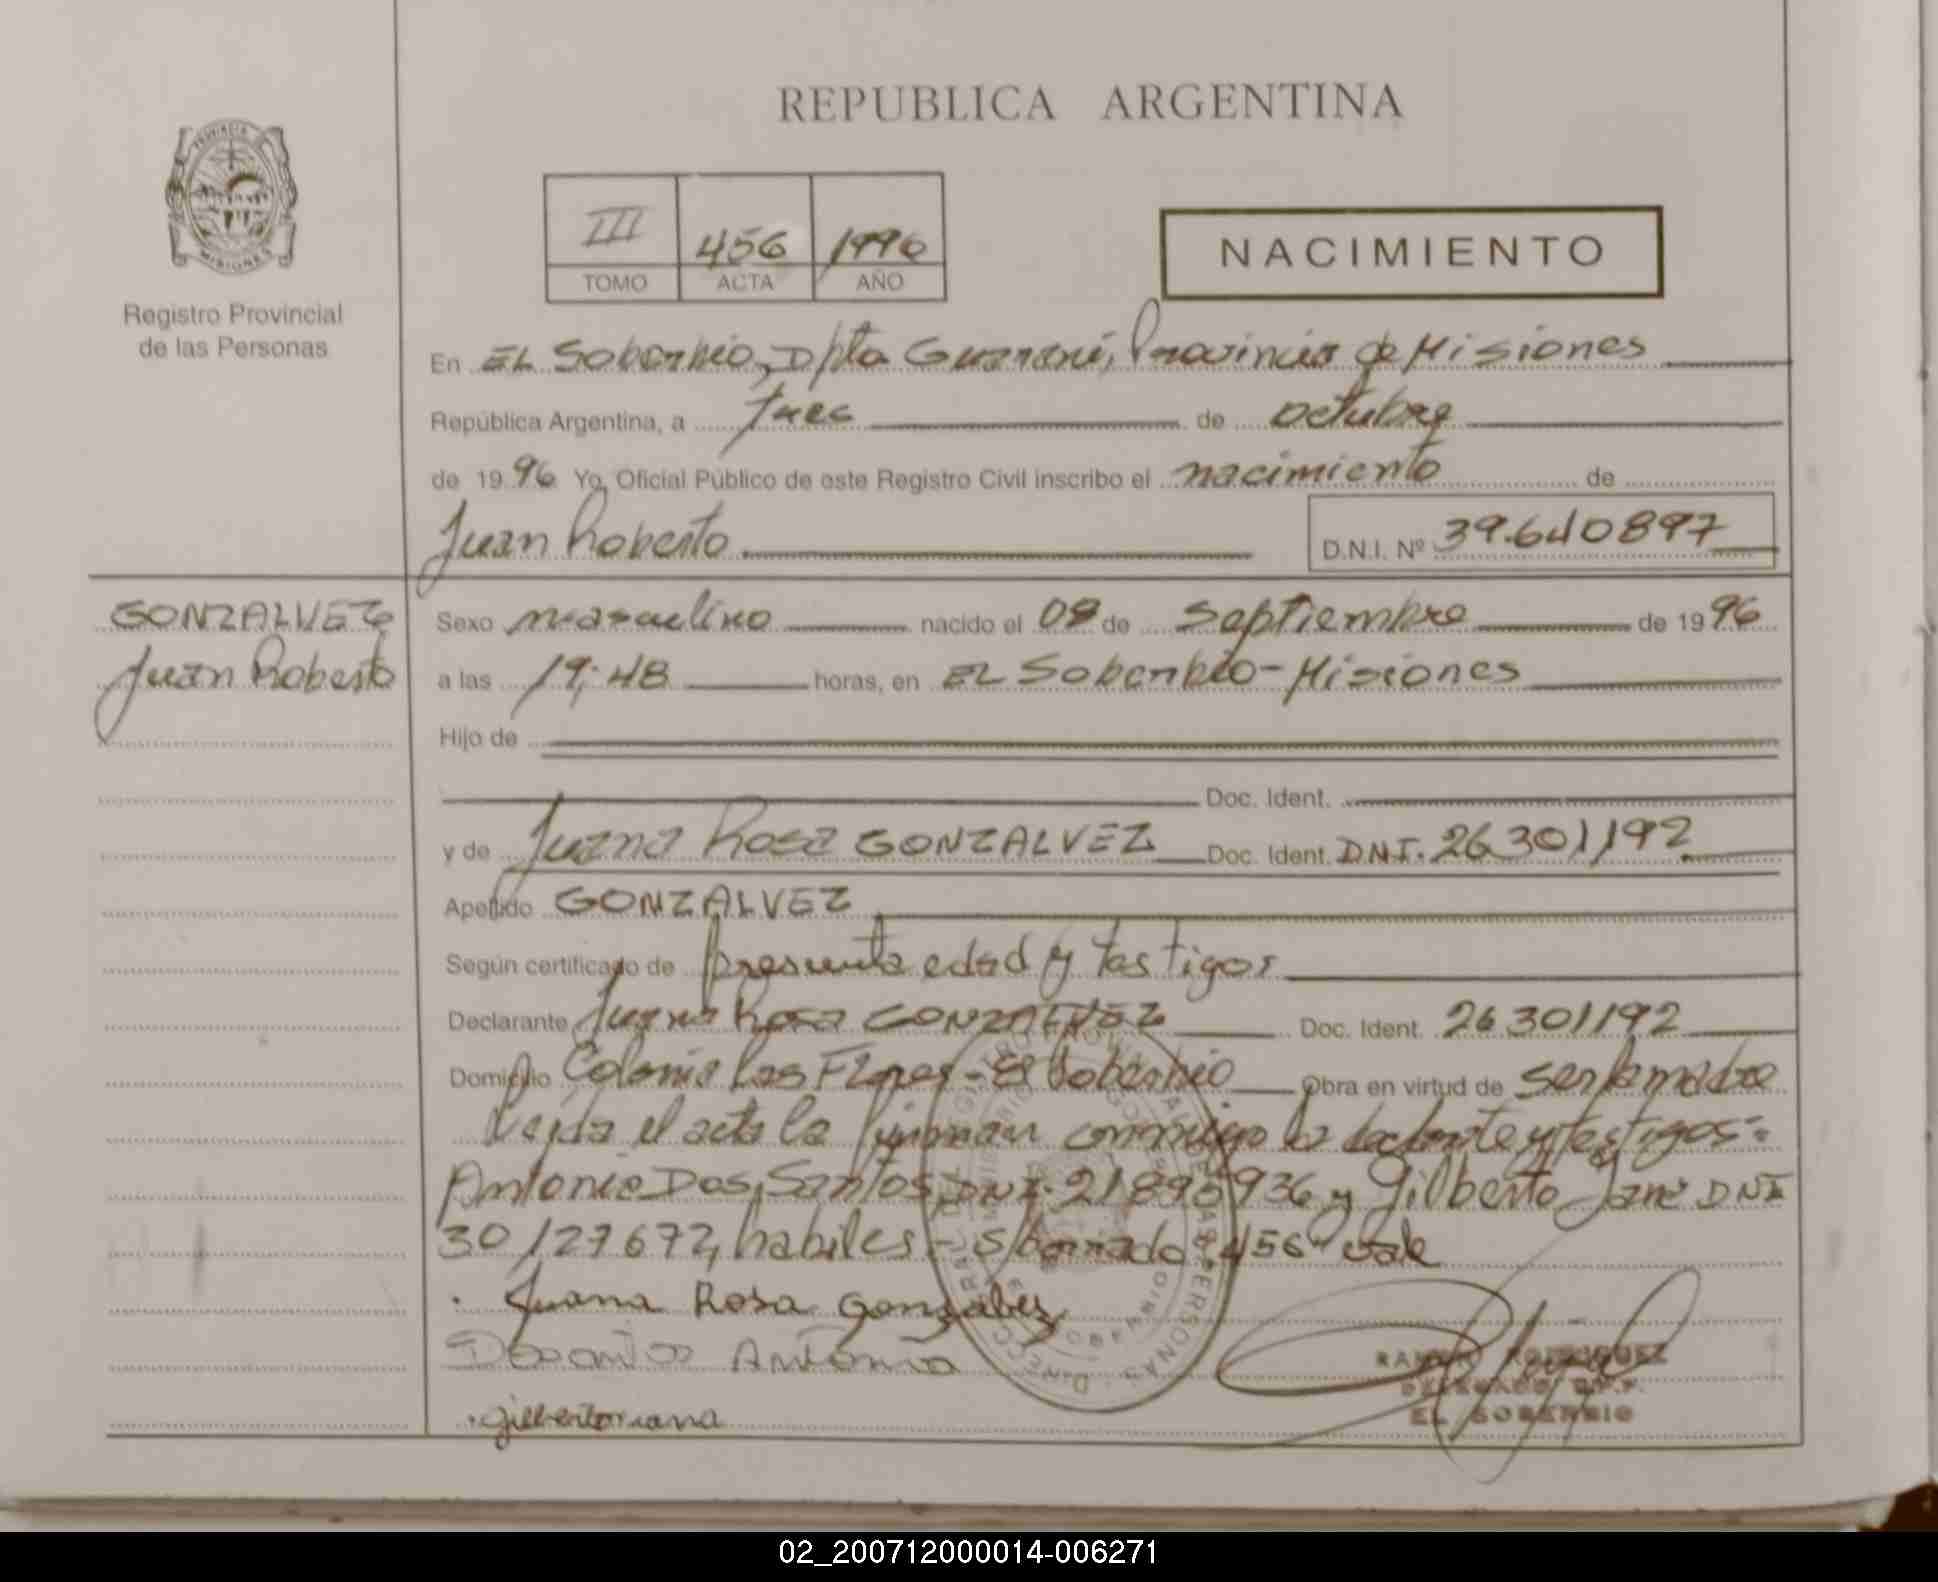 REPUBLICA ARGENTINA
PROVINCIA
MISIONES
Registro Provincial
de las Personas
III 456 1996
TOMO ACTA AÑO
NACIMIENTO
En EL Soberbio, Dpto Guaraní, Provincia de Misiones
República Argentina, a tres de octubre
de 19 96 Yo, Oficial Público de este Registro Civil inscribo el nacimiento de
Juan Roberto
D.N.I. Nº 39.640897
GONZALVEZ
Juan Roberto
Sexo masculino nacido el 08 de Septiembre de 19 96
a las 19;48 horas, en EL Soberbio - Misiones
Hijo de
Doc. Ident.
y de Juana Rosa GONZALVEZ Doc. Ident. DNI. 26301192
Apellido GONZALVEZ
Según certificado de presunta edad y testigos
Declarante Juana Rosa GONZALVEZ Doc. Ident. 26301192
Domicilio Colonia Las Flores - El Soberbio Obra en virtud de ser la madre
Leída el acta la firman conmigo la declarante y testigos:
Antonio Dos Santos DNI. 21895936 y Gilberto DNI
30127672, habiles - S/borrado "456" vale
Juana Rosa Gonzalvez
Antonio
EL SOBERBIO
02_200712000014-006271